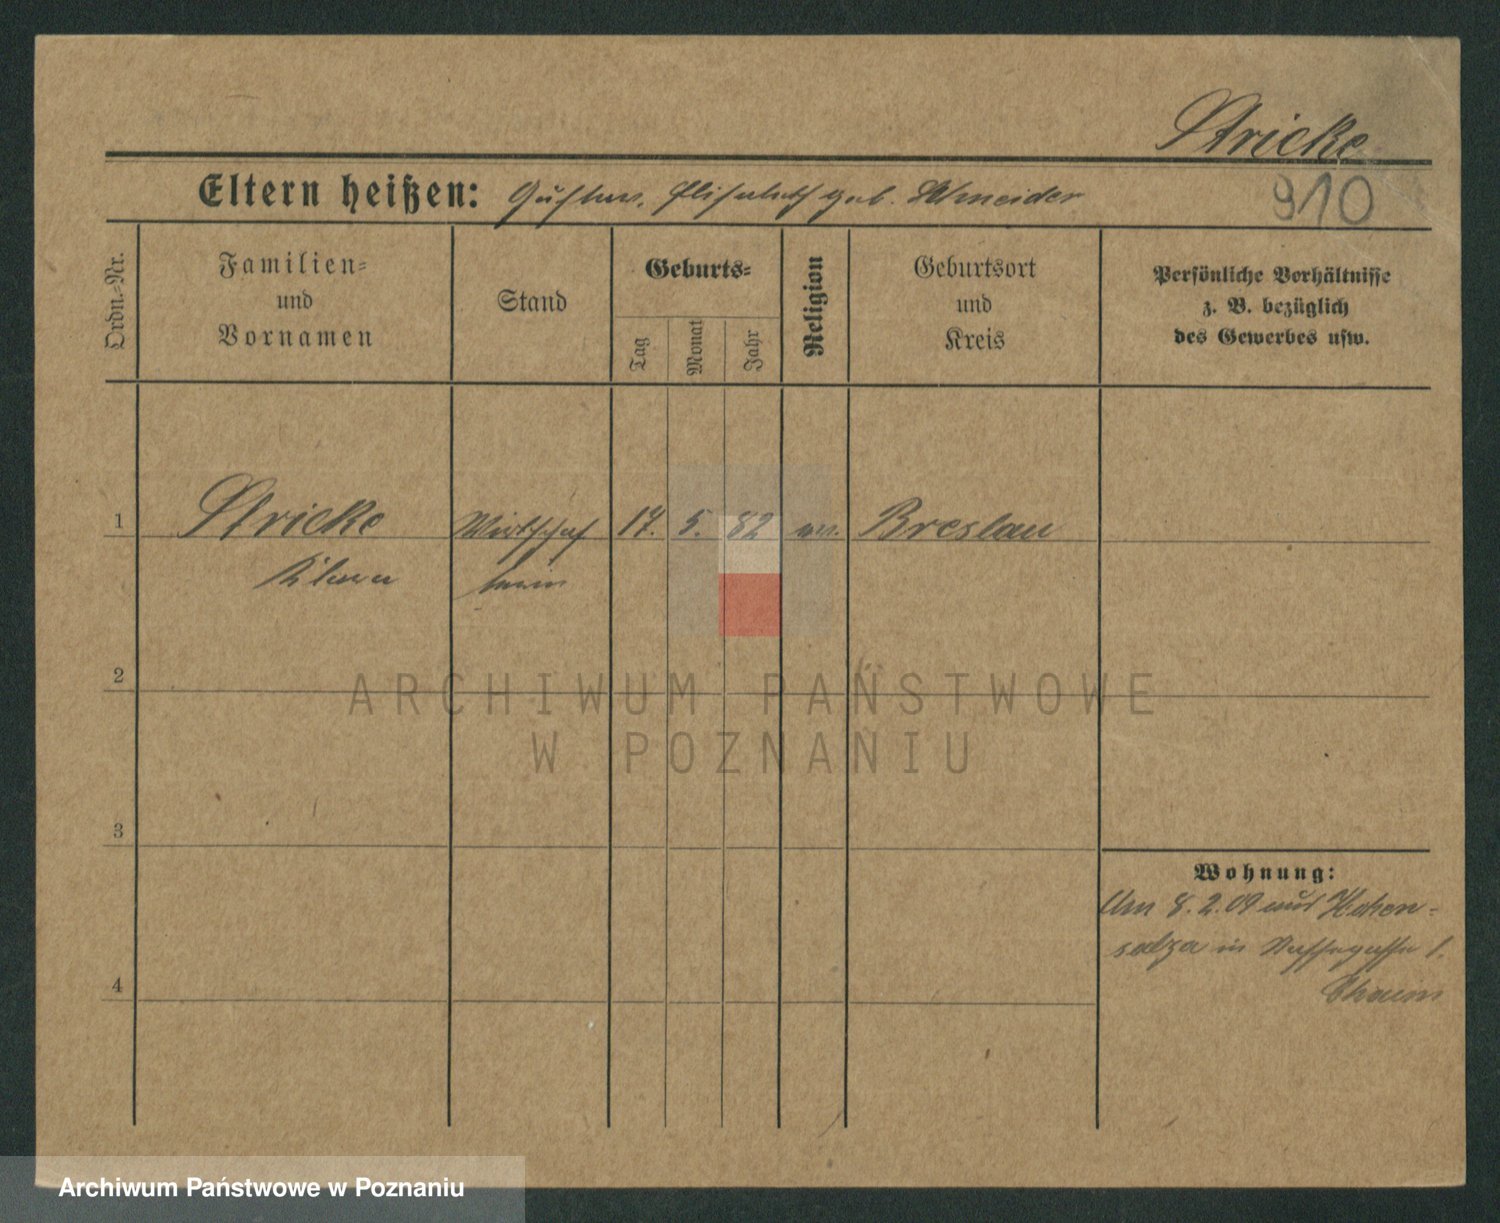 Stricke
Eltern heißen: Gustav, Elisabeth geb. Schneider
910
Ordn.-Nr.
Familien-
und
Vornamen
Stand
Geburts-
Tag
Monat
Jahr
Religion
Geburtsort
und
Kreis
Persönliche Verhältnisse
z. B. bezüglich
des Gewerbes usw.
1 Stricke Wirtschaf 17. 5. 82 ev. Breslau
terin
2
3
4
Wohnung:
Am 8.2.09 aus Hohen-
salza in
ARCHIWUM PAŃSTWOWE
W POZNANIU
Archiwum Państwowe w Poznaniu